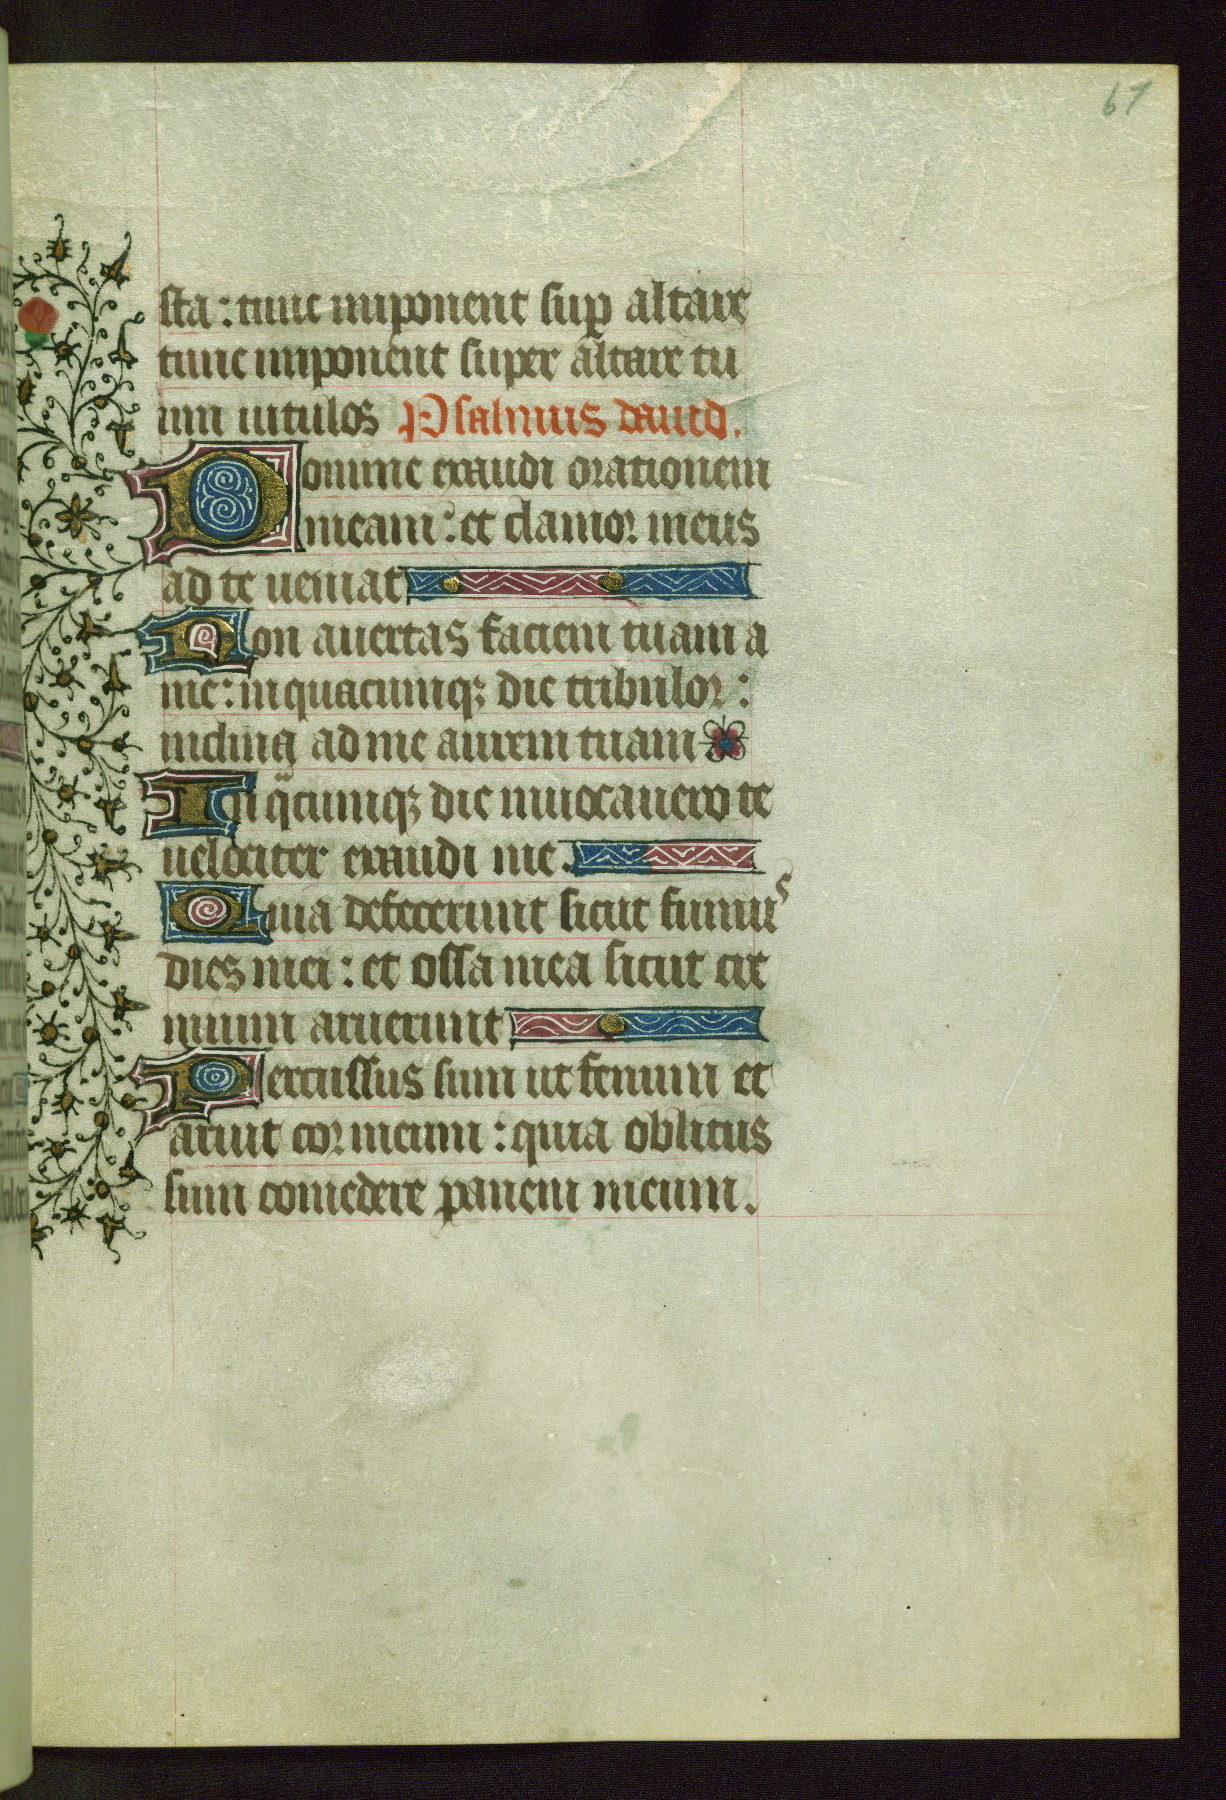 67
sta : tunc imponent sup altare
tunc imponent super altare tu
um uitulos Psalmus dauid.
Domine exaudi orationem
meam : et clamor meus
ad te ueniat
Non auertas faciem tuam a
me : in quacumqꝫ die tribulor :
inclina ad me aurem tuam
In qͣcumqꝫ die inuocauero te
uelociter exaudi me.
Quia defecerunt sicut fumus
dies mei : et ossa mea sicut cre
mium aruerunt
Percussus sum ut fenum et
aruit cor meum : quia oblitus
sum comedere panem meum.